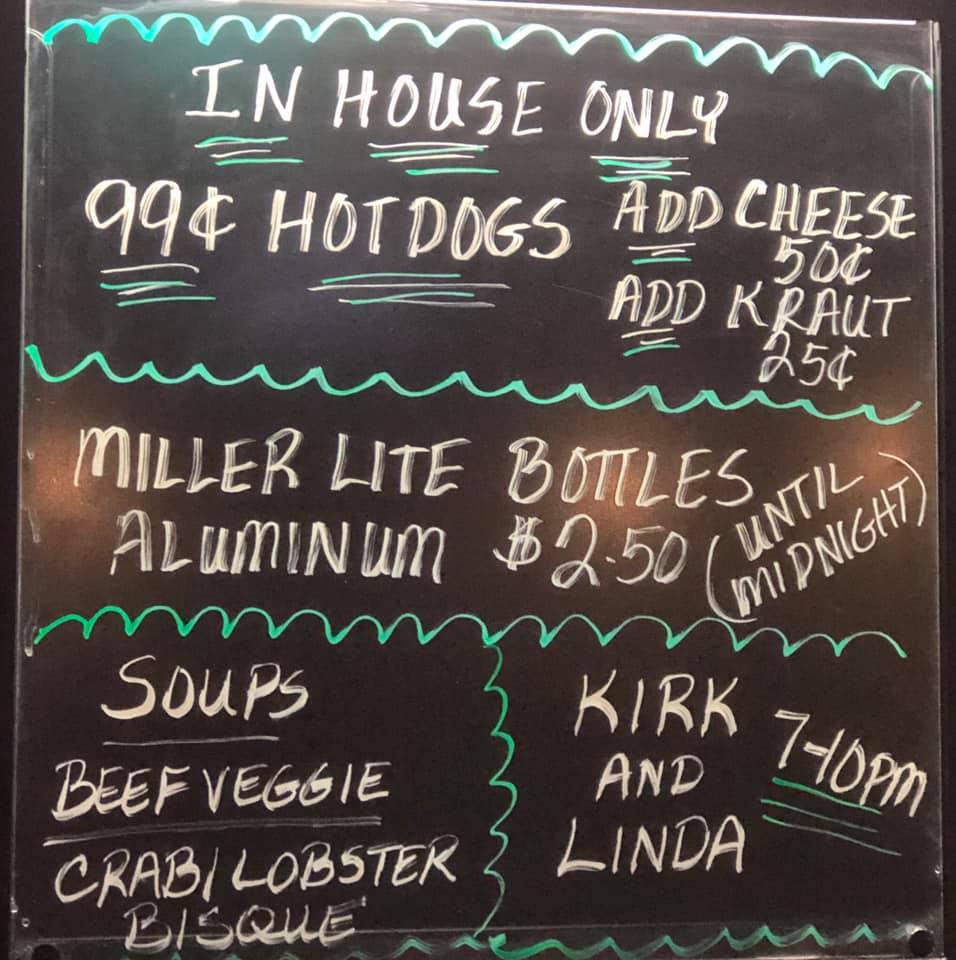 IN HOUSE ONLY
99¢ HOTDOGS
ADD CHEESE
50¢
ADD KRAUT
25¢
MILLER LITE BOTTLES
ALUMINUM $2.50
(UNTIL
MIDNIGHT)
SOUPS
BEEF VEGGIE
CRAB/LOBSTER
BISQUE
KIRK
AND
LINDA
7-10PM